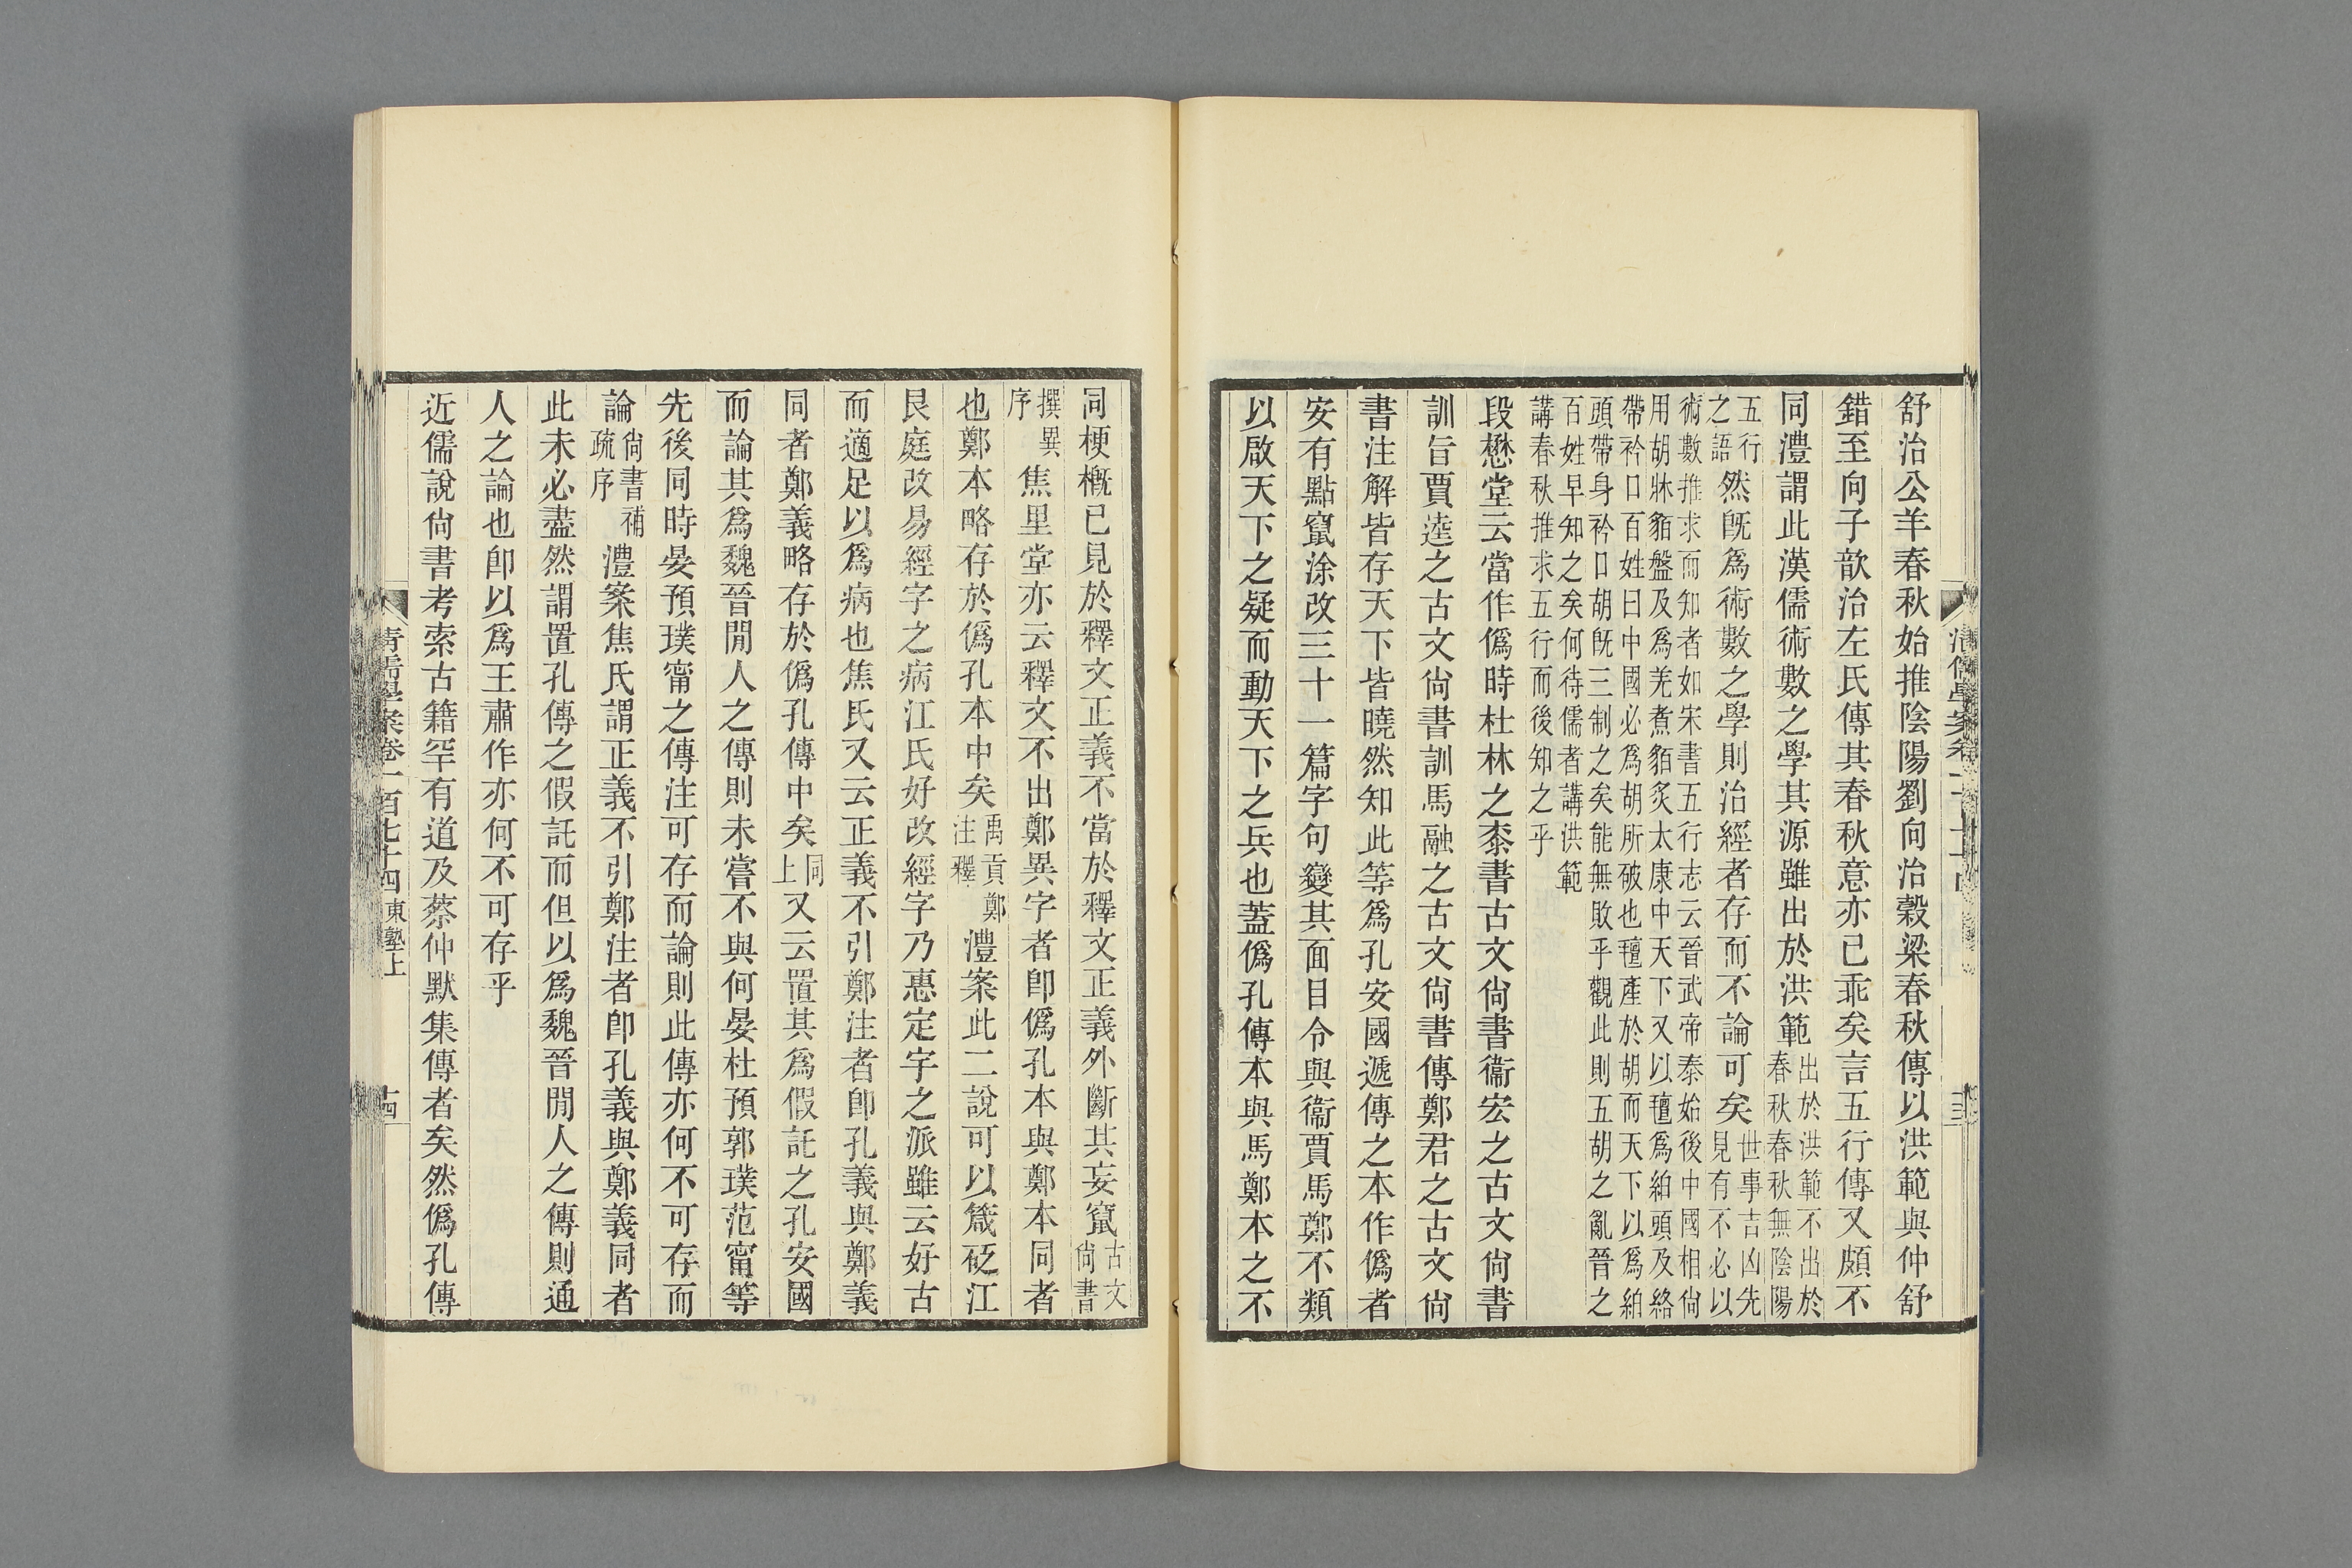 舒治公羊春秋始推陰陽劉向治穀梁春秋傳以洪範與仲舒
錯至向子歆治左氏傳其春秋意亦已乖矣言五行傳又頗不
同澧謂此漢儒術數之學其源雖出於洪範
出於洪範不出於
春秋春秋無陰陽
五行
之語
然旣爲術數之學則治經者存而不論可矣
世事吉凶先
見有不必以
術數推求而知者如宋書五行志云晉武帝泰始後中國相尙
用胡牀貊盤及爲羌煮貊炙太康中天下又以氊爲絈頭及絡
帶衿口百姓曰中國必爲胡所破也氊產於胡而天下以爲絈
頭帶身衿口胡旣三制之矣能無敗乎觀此則五胡之亂晉之
百姓早知之矣何待儒者講洪範
講春秋推求五行而後知之乎
段懋堂云當作僞時杜林之桼書古文尙書衞宏之古文尙書
訓旨賈逵之古文尙書訓馬融之古文尙書傳鄭君之古文尙
書注解皆存天下皆曉然知此等爲孔安國遞傳之本作僞者
安有點竄涂改三十一篇字句變其面目令與衞賈馬鄭不類
以啟天下之疑而動天下之兵也蓋僞孔傳本與馬鄭本之不
同梗概已見於釋文正義不當於釋文正義外斷其妄竄
古文
尙書
撰異
序
焦里堂亦云釋文不出鄭異字者卽僞孔本與鄭本同者
也鄭本略存於僞孔本中矣
禹貢鄭
注釋
澧案此二說可以箴砭江
艮庭改易經字之病江氏好改經字乃惠定宇之派雖云好古
而適足以爲病也焦氏又云正義不引鄭注者卽孔義與鄭義
同者鄭義略存於僞孔傳中矣
同
上
又云置其爲假託之孔安國
而論其爲魏晉閒人之傳則未嘗不與何晏杜預郭璞范甯等
先後同時晏預璞甯之傳注可存而論則此傳亦何不可存而
論
尙書補
疏序
澧案焦氏謂正義不引鄭注者卽孔義與鄭義同者
此未必盡然謂置孔傳之假託而但以爲魏晉閒人之傳則通
人之論也卽以爲王肅作亦何不可存乎
近儒說尙書考索古籍罕有道及蔡仲默集傳者矣然僞孔傳
清儒學案卷一百七十四 東塾上
十四